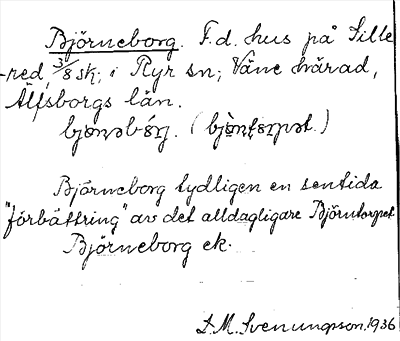 Björneborg. F.d. hus på Sille
-red, 3/8 sk; i Ryr sn; Väne härad,
Älfsborgs län.
Björneborg tydligen en sentida
"förbättring" av det alldagligare Björntorpet
Björneborg ek.
D.M. Svenungsson. 1936